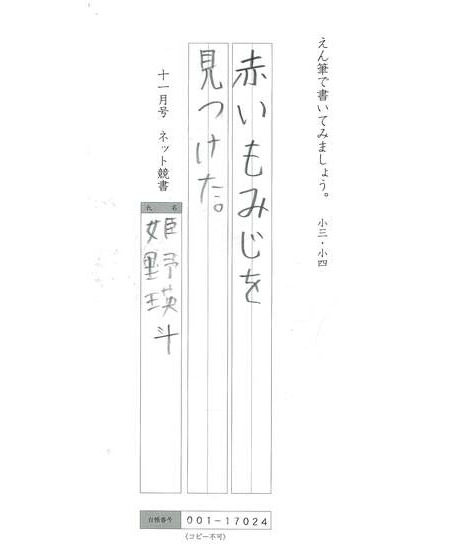 えん筆で書いてみましょう。 小三・小四
赤いもみじを
見つけた。
十一月号 ネット競書
氏名
姫野瑛斗
台帳番号 001-17024
(コピー不可)